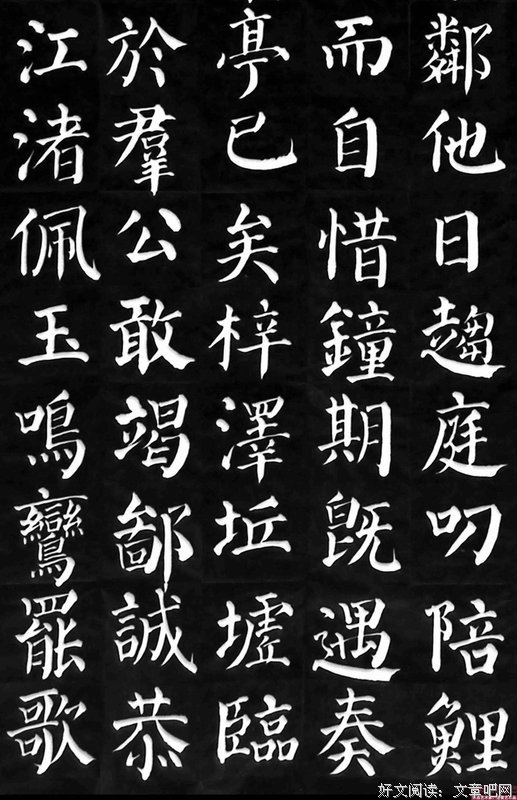 鄰他日趨庭叨陪鯉
而自惜鐘期既遇奏
亭已矣梓澤坵墟臨
於羣公敢竭鄙誠恭
江渚佩玉鳴鸞罷歌
好文阅读：文章吧网